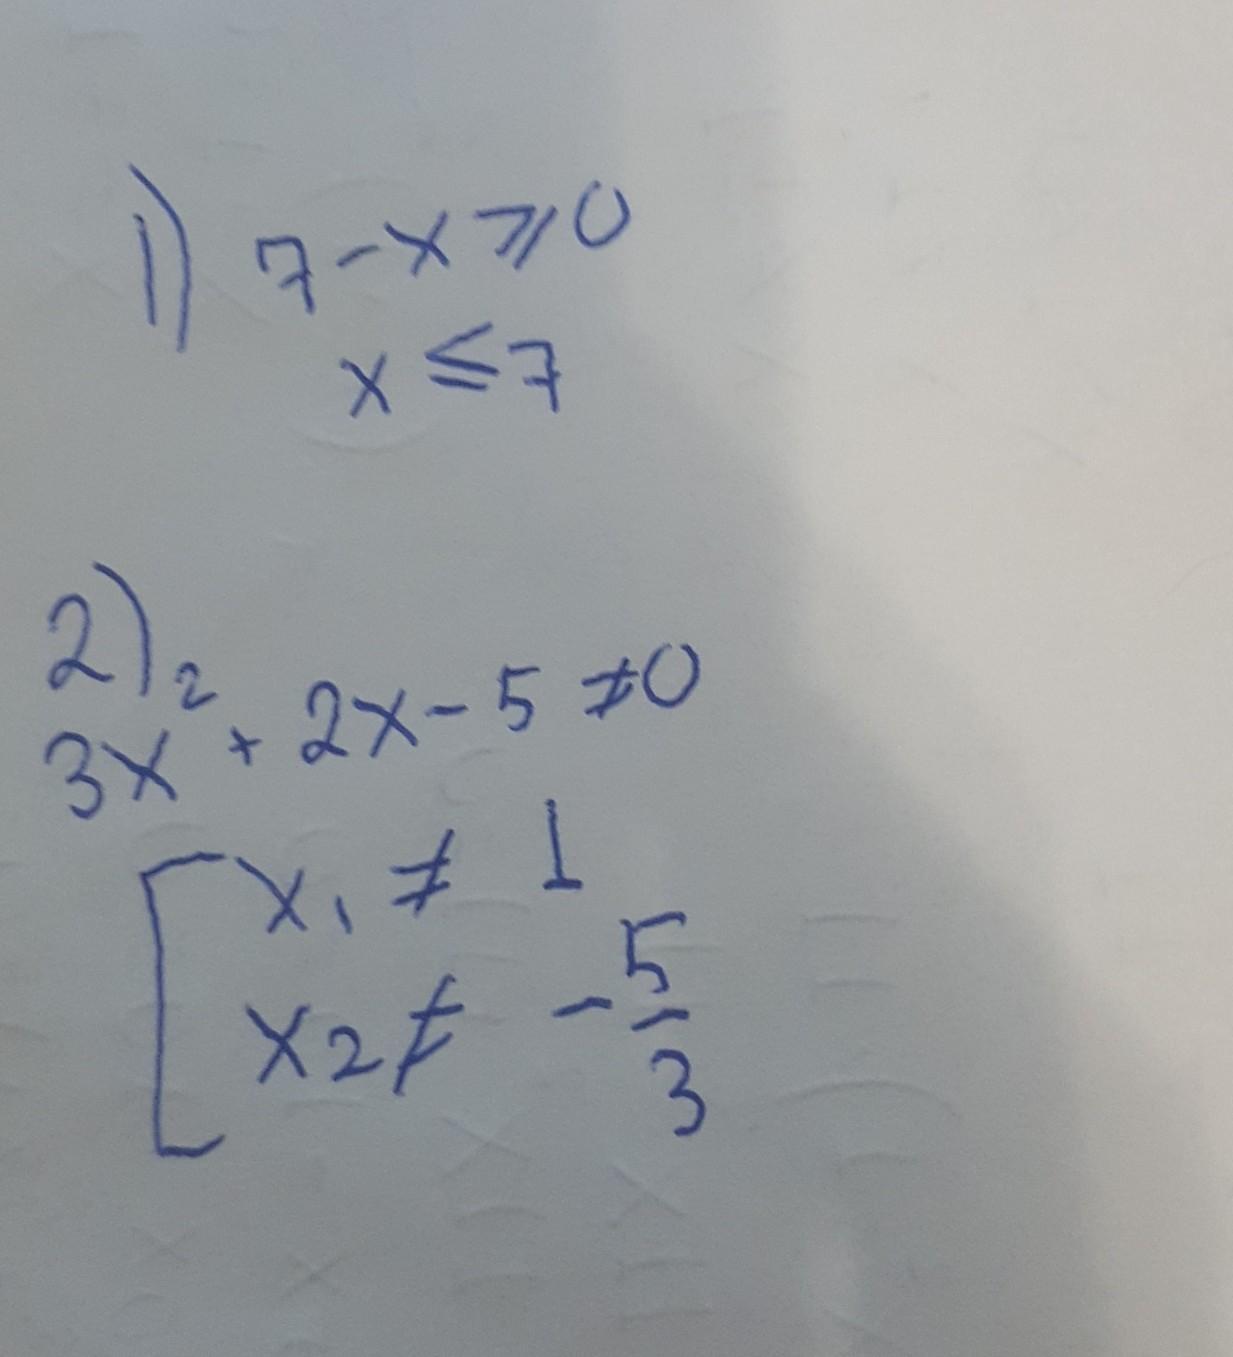 1) 7-x ⩾ 0
x ≤ 7
2)
3x² + 2x - 5 ≠ 0
[ x₁ ≠ 1
x₂ ≠ - 5/3